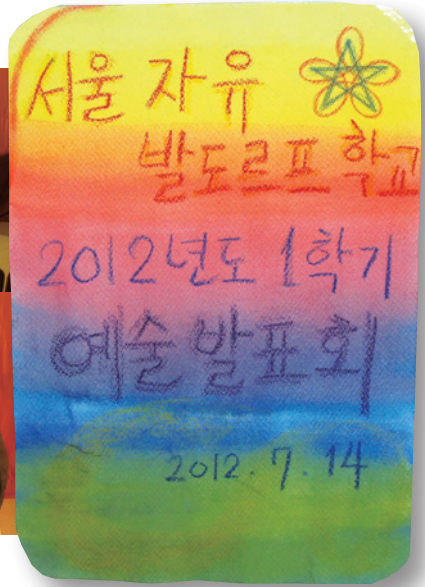 서울 자유
발도르프 학교
2012년도 1학기
예술발표회
2012. 7. 14